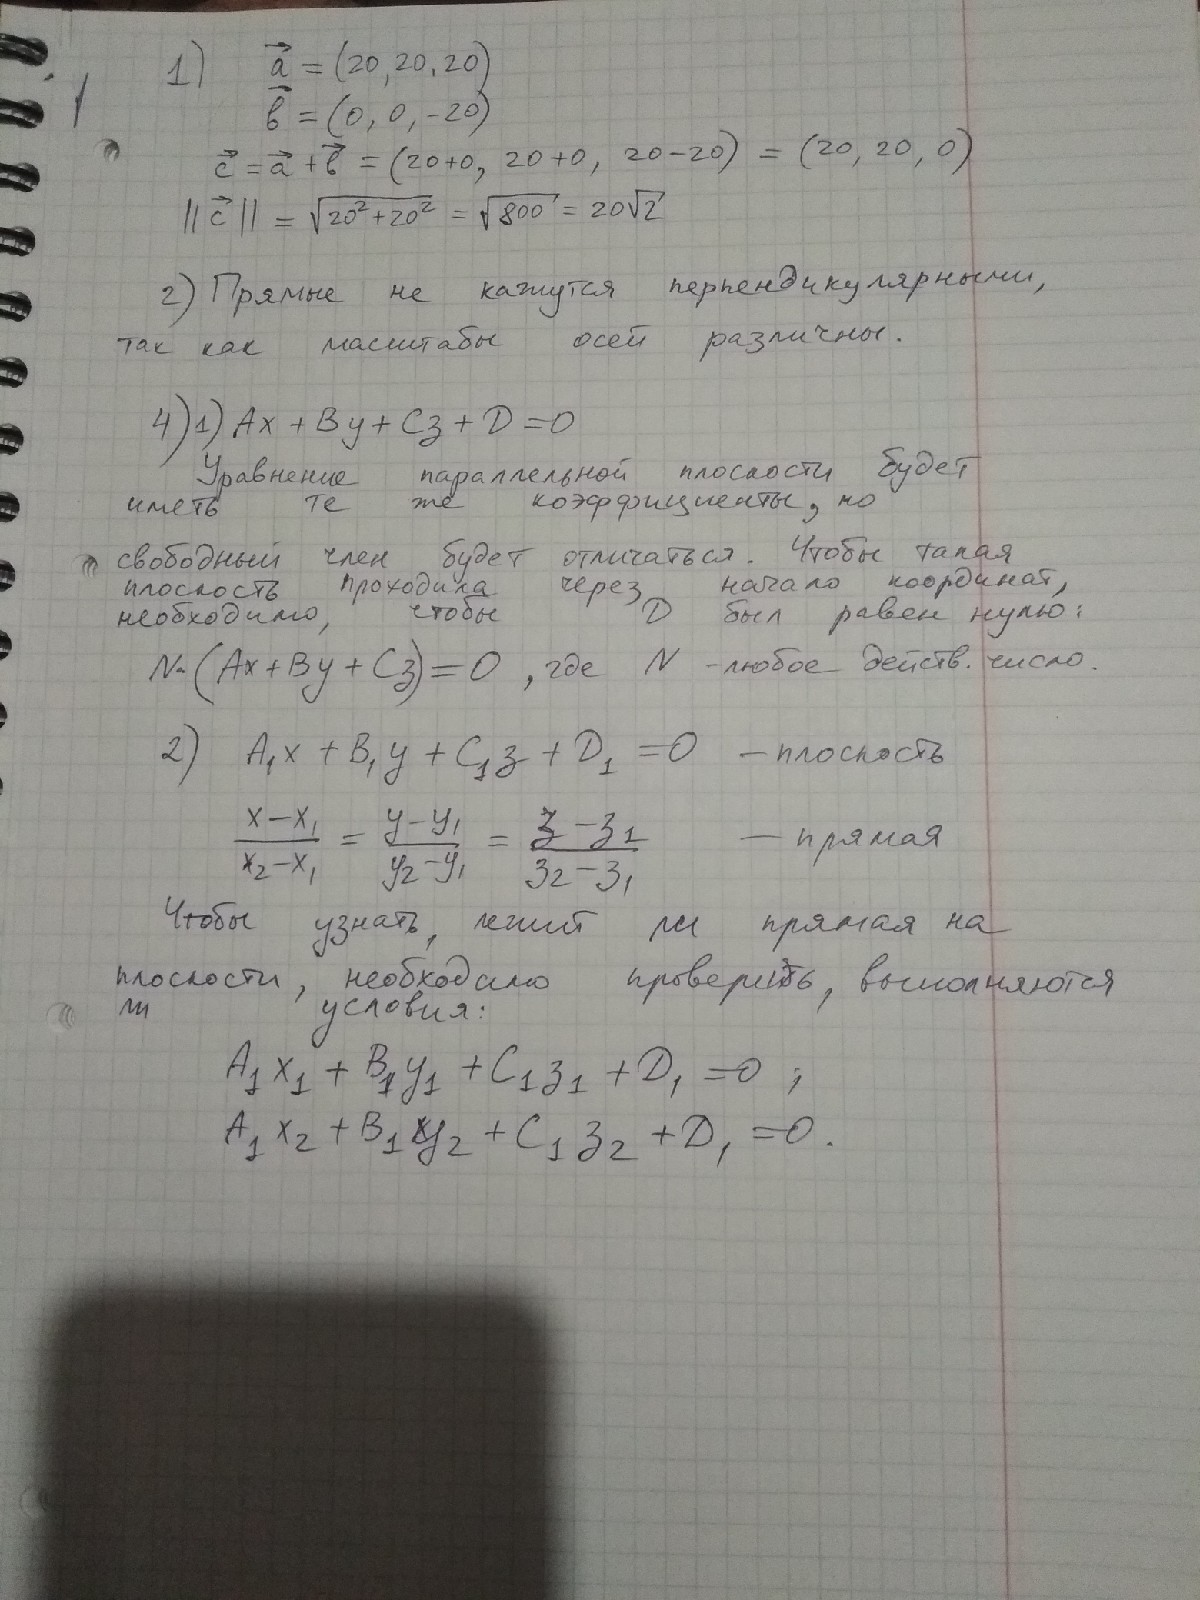 1) a⃗ = (20, 20, 20)
b⃗ = (0, 0, -20)
c⃗ = a⃗ + b⃗ = (20+0, 20+0, 20-20) = (20, 20, 0)
||c⃗|| = √(20²+20²) = √800 = 20√2
2) Прямые не кажутся перпендикулярными,
так как масштабы осей различны.
4) 1) Ax + By + Cz + D = 0
Уравнение параллельной плоскости будет
иметь те же коэффициенты, но
свободный член будет отличаться. Чтобы такая
плоскость проходила через начало координат,
необходимо, чтобы D был равен нулю:
N·(Ax + By + Cz) = 0, где N - любое действ. число.
2) A₁x + B₁y + C₁z + D₁ = 0 — плоскость
(x-x₁)/(x₂-x₁) = (y-y₁)/(y₂-y₁) = (z-z₁)/(z₂-z₁) — прямая
Чтобы узнать, лежит ли прямая на
плоскости, необходимо проверить, выполняются
ли условия:
A₁x₁ + B₁y₁ + C₁z₁ + D₁ = 0;
A₁x₂ + B₁y₂ + C₁z₂ + D₁ = 0.